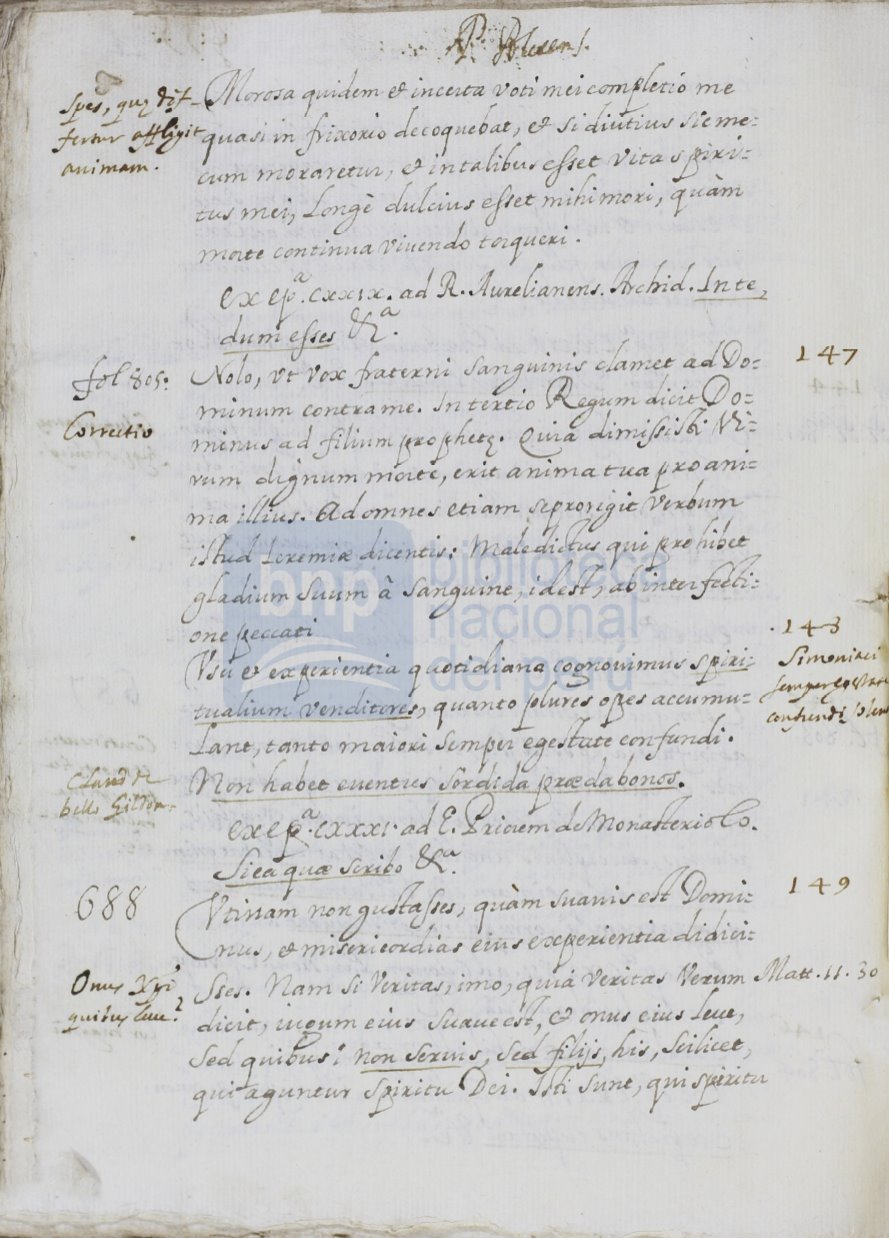 P. Blesens.
Spes, quę dif-
fertur affligit
animam.
Morosa quidem et incerta voti mei completio me
quasi in frixorio decoquebat, et si diutius sic me-
cum moraretur, et in talibus esset vita spiri-
tus mei, Longè dulcius esset mihi mori, quàm
morte continua vivendo torqueri.
ex epᵃ. cxxix. ad R. Aurelianens. Archid. Inte,
dum esses &ᵃ.
147
fol 805.
Correctio
Nolo, vt vox fraterni sanguinis clamet ad Do-
minum contra me. In tertio Regum dicit Do-
minus ad filium prophetę. Quia dimissisti Vi-
rum dignum morte, erit anima tua pro ani-
ma illius. Ad omnes etiam se prorigit verbum
istud Ieremiæ dicentis: Maledictus qui prohibet
gladium suum â sanguine, idest, ab interfecti-
one peccati.
148
Simoniaci
semper egestate
confundi
Vsu et experientia quotidiana cognouimus spiri-
tualium venditores, quanto plures opes accumu-
lant, tanto maiori semper egestate confundi.
Claud de
bello Gildon.
Non habet eventus sordida præda bonos.
ex epᵃ. cxxxi. ad E. Priorem de Monasterio Co.
Si ea quæ scribo &ᵃ.
149
688
Vtinam non gustasses, quàm suauis est Domi-
nus, et misericordias eius experientia didici-
Onus Xpi
quibus leue?
Matt. 11. 30
sses. Nam si Veritas, imo, quia veritas verum
dicit, iugum eius suaue est, et onus eius leue,
sed quibus? non seruis, sed filijs, his, scilicet,
qui aguntur spiritu Dei. Isti sunt, qui spiritu
bnp biblioteca
nacional
del perú